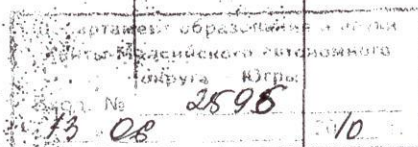 Департамент образования и науки
Ханты-Мансийского автономного
округа Югры
Вход. № 2595
13 08 10